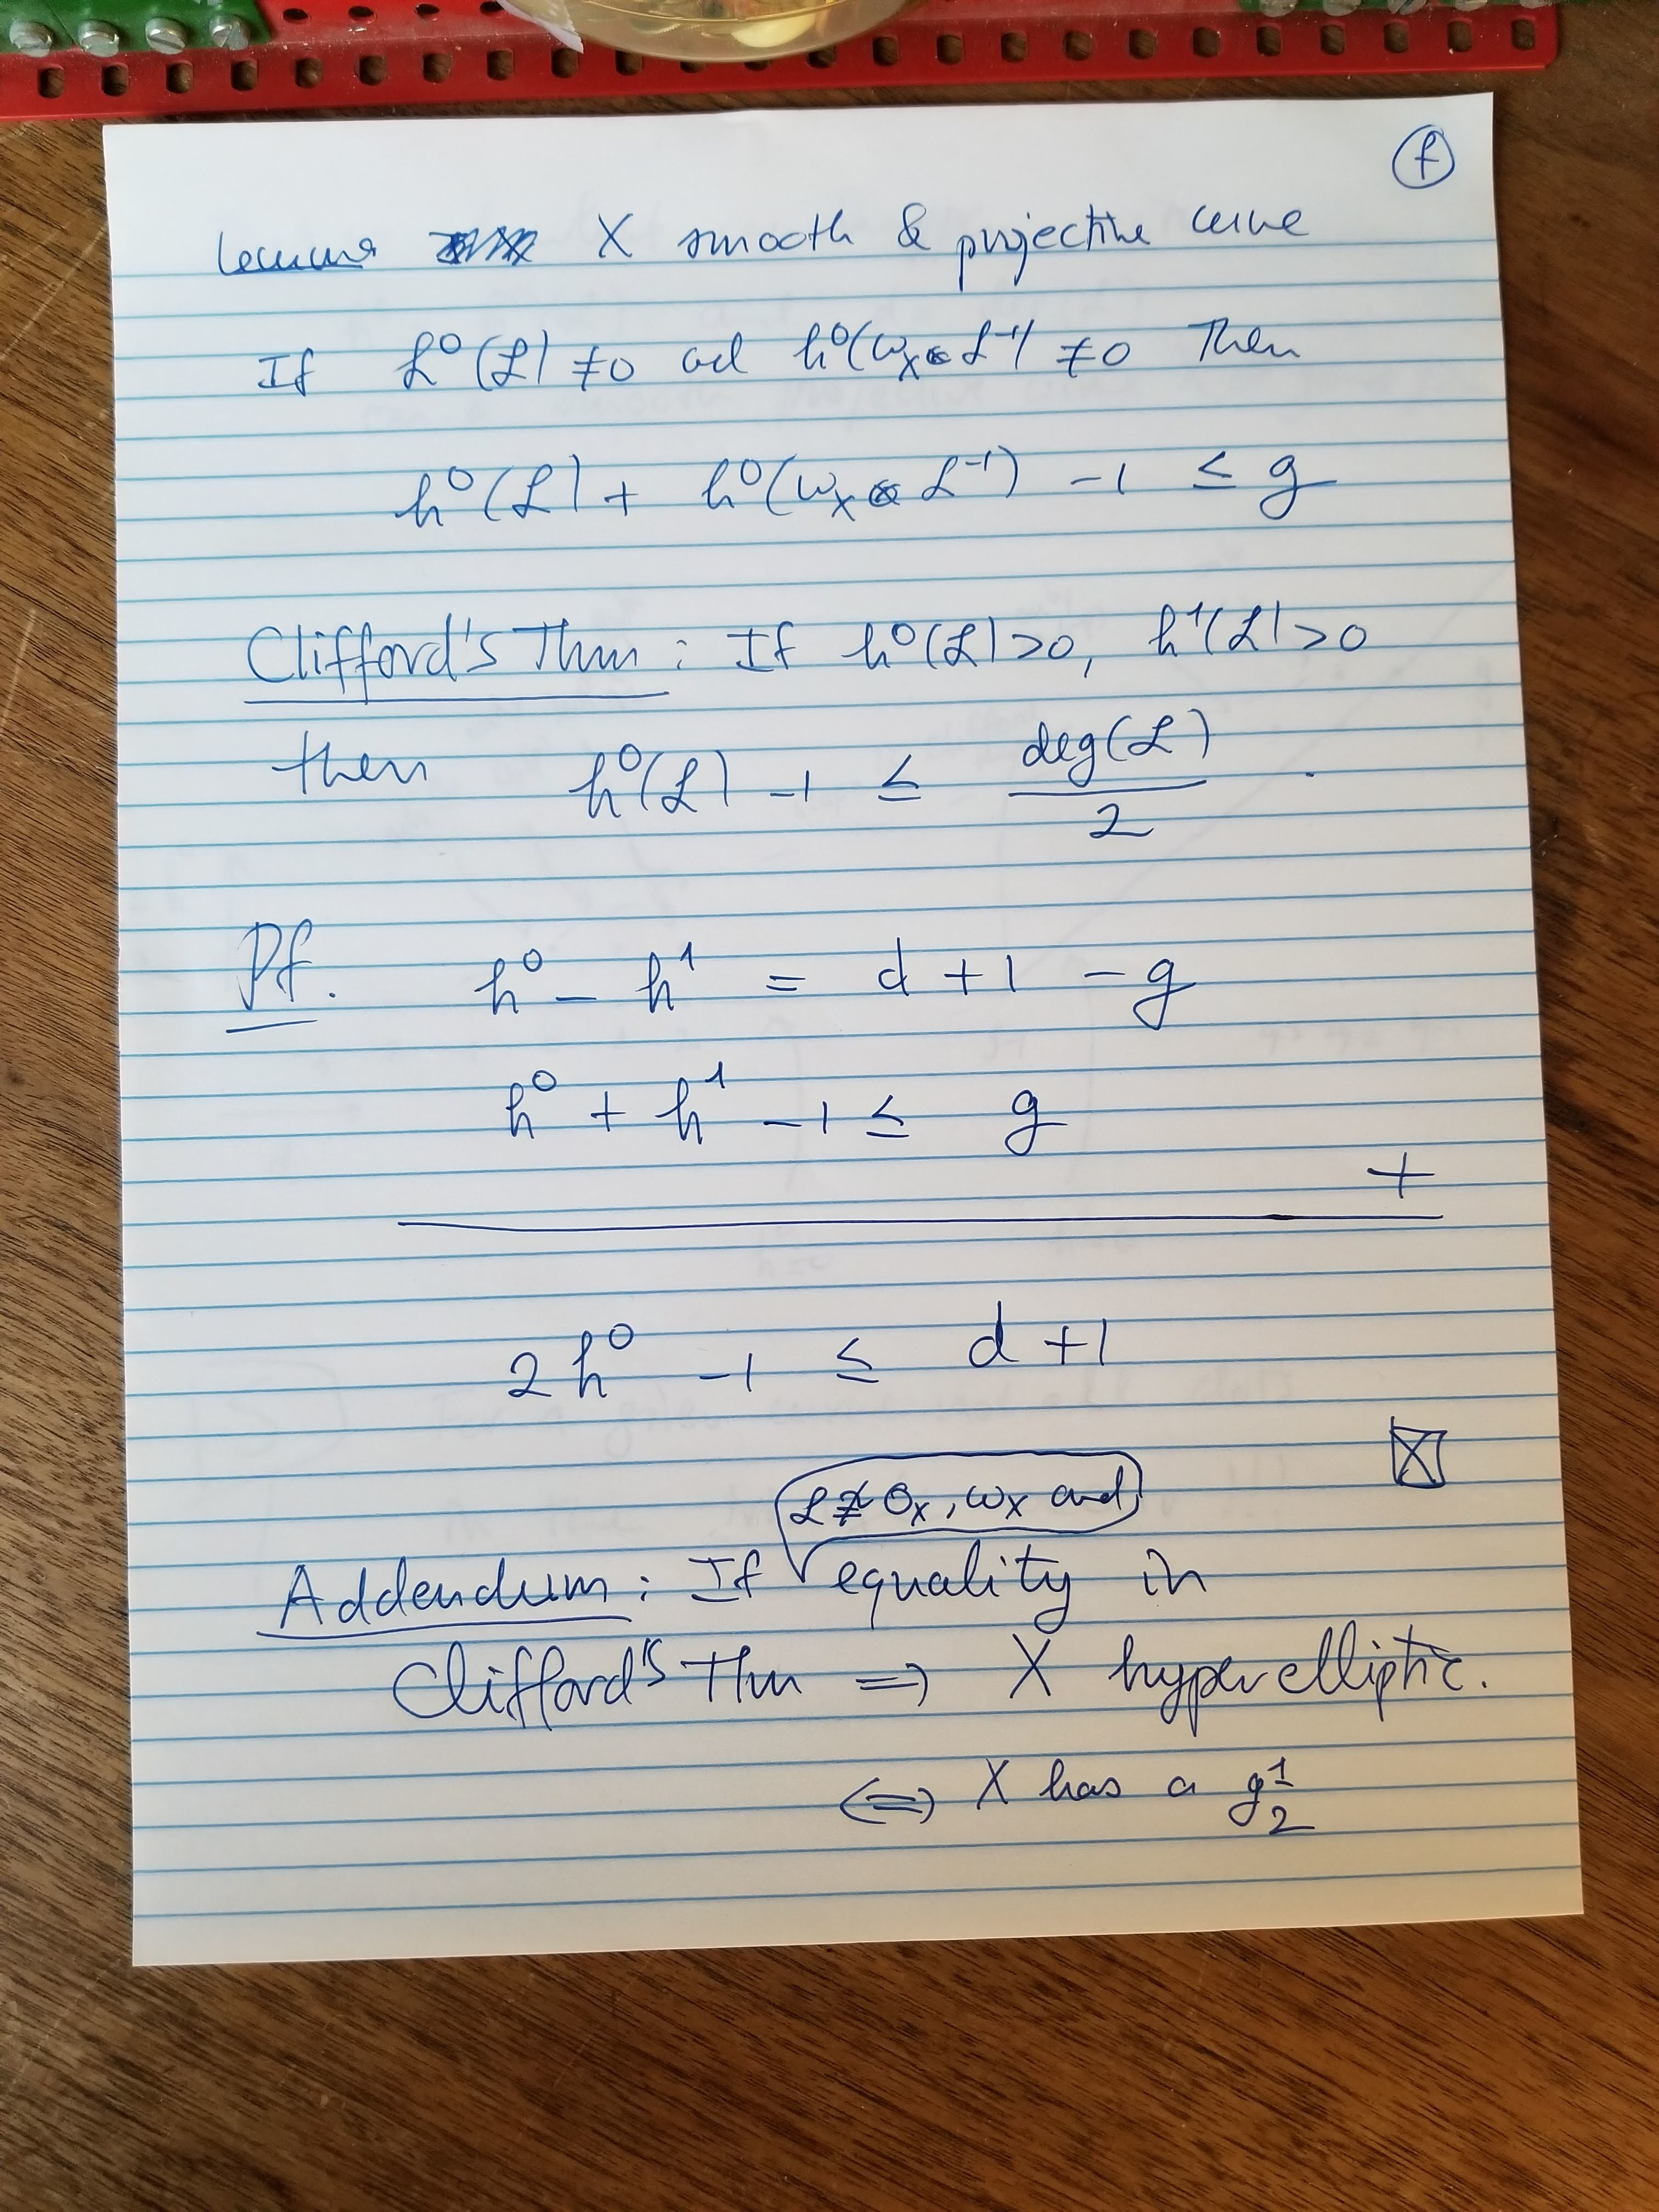 f
Lemma X smooth & projective curve
If h⁰(ℒ) ≠ 0 and h⁰(ω_X ⊗ ℒ⁻¹) ≠ 0 Then
h⁰(ℒ) + h⁰(ω_X ⊗ ℒ⁻¹) - 1 ≤ g
Clifford's Thm : If h⁰(ℒ) > 0, h¹(ℒ) > 0
then h⁰(ℒ) - 1 ≤ deg(ℒ) / 2 .
Pf. h⁰ - h¹ = d + 1 - g
h⁰ + h¹ - 1 ≤ g
+
2h⁰ - 1 ≤ d + 1
ℒ ≇ O_X, ω_X and
Addendum : If equality in
Clifford's Thm ⇒ X hyperelliptic.
⇔ X has a g¹₂